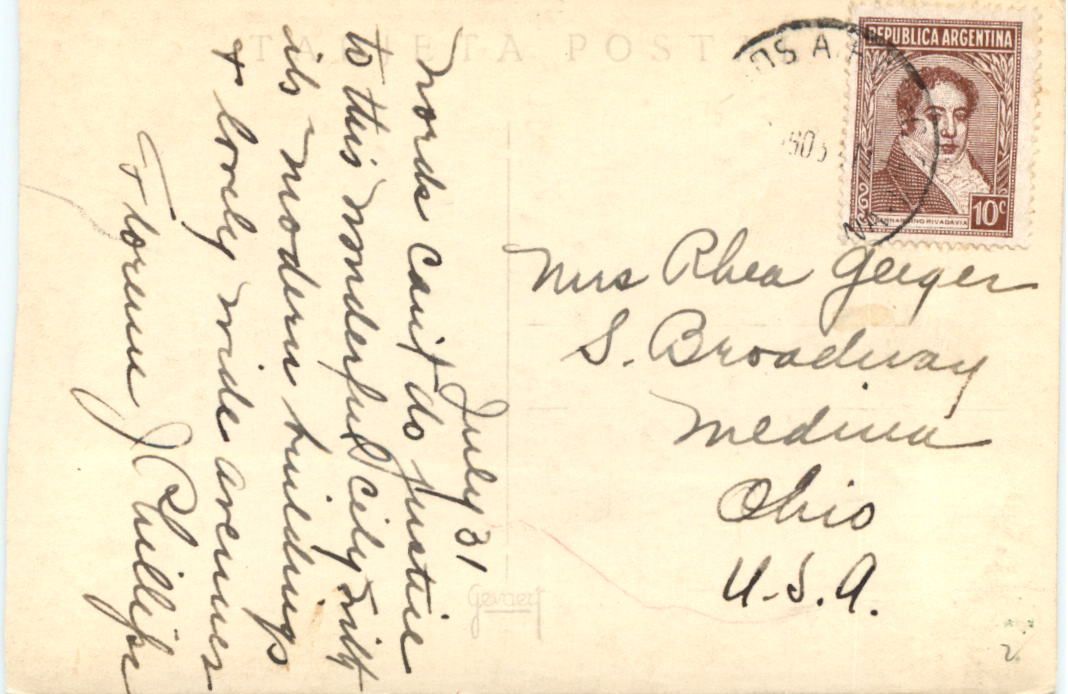 TARJETA POSTAL
REPUBLICA ARGENTINA
BERNARDINO RIVADAVIA
10c
OS A
July 31
Words can't do justice
to this wonderful city with
its modern buildings
+ lovely wide avenues
Florence J Phillips
Mrs Rhea Geiger
S. Broadway
Medina
Ohio
U.S.A.
Gevaert